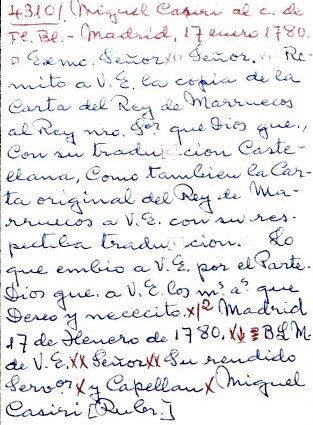 4310/ Miguel Casiri al c. de
Fl. Bl. - Madrid, 17 enero 1780.
Exmo. Señor xx Señor. xx Re-
mito a V.E. la copia de la
Carta del Rey de Marruecos
al Rey nro. Sor que Dios gue.,
Con su traducion Caste-
llana, Como tambien la Car-
ta original del Rey de Ma-
rruecos a V.E. con su res-
pectiba traducion. Lo
que embio a V.E. por el Parte.
Dios gue. a V.E. los ms. as. que
Deseo y nececito. x/2 Madrid
17 de Henero de 1780. x/ B.L.M.
de V.E. xx Señor xx Su rendido
Servor x y Capellan x Miguel
Casiri [Rubr.]